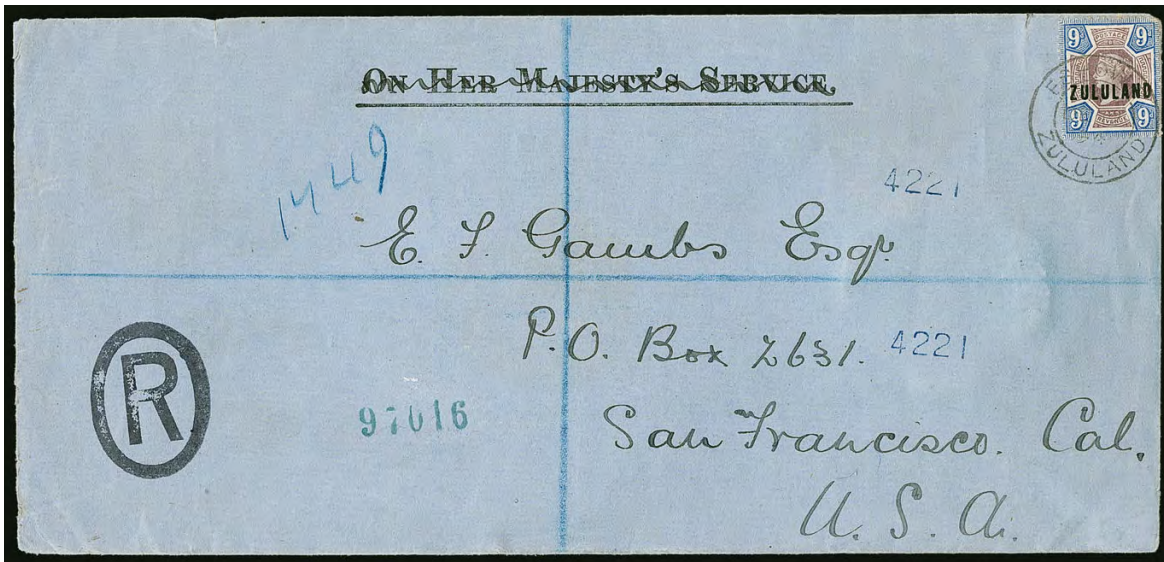 ON HER MAJESTY'S SERVICE
9d 9d
POSTAGE
ZULULAND
REVENUE
9d 9d
ZULULAND
1449
4221
E. F. Gambs Esqr.
P.O. Box 2631.
4221
R
97016
San Francisco. Cal.
U. S. A.